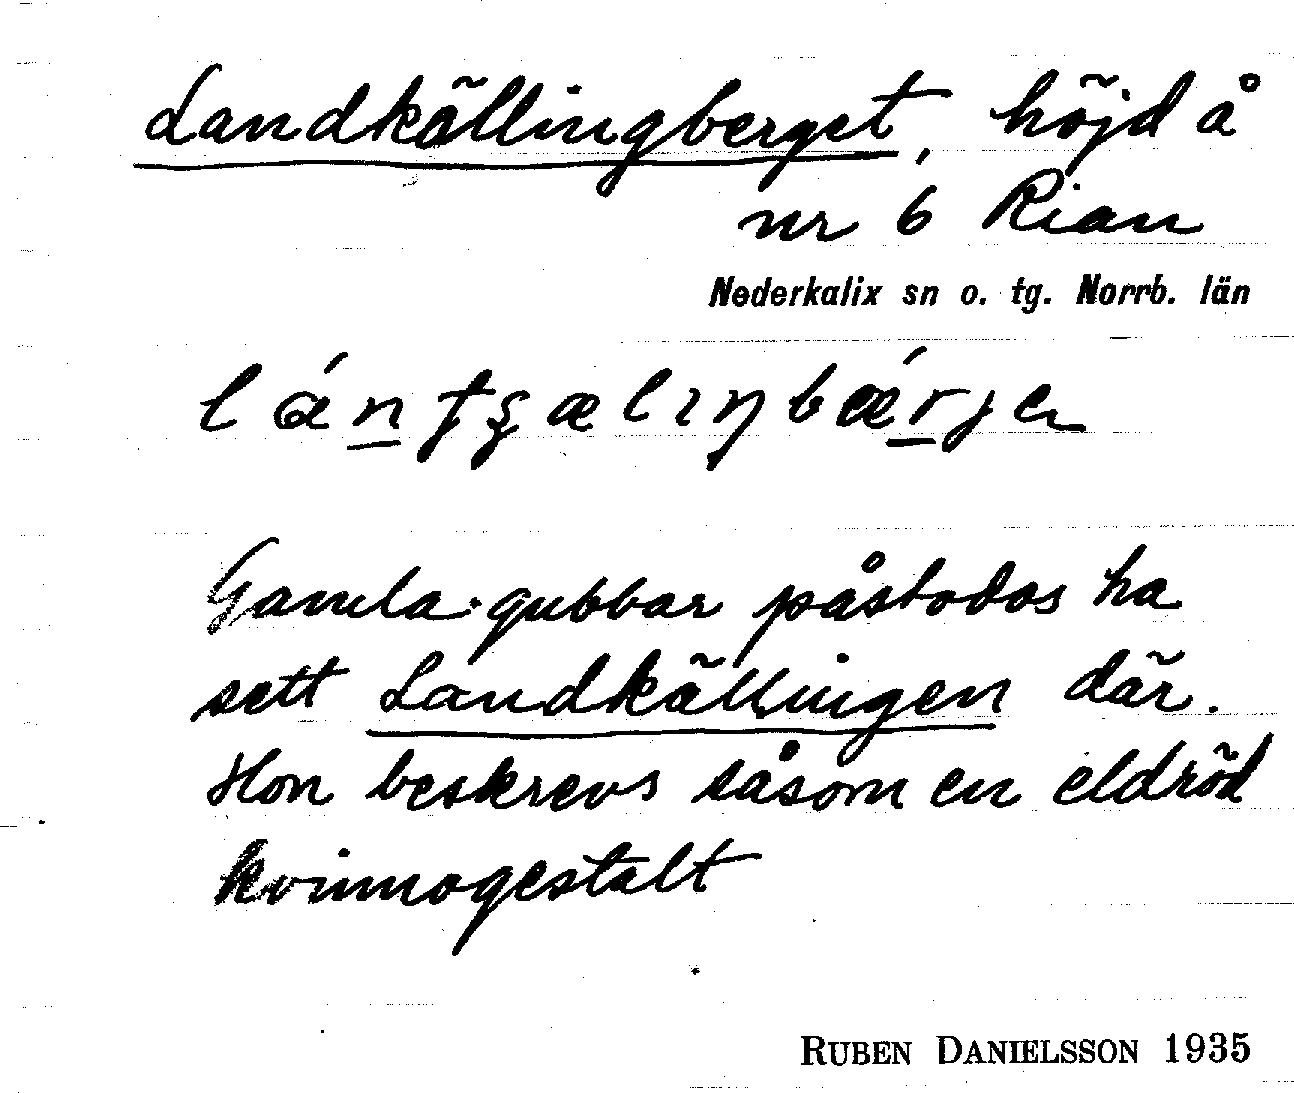 Landkällingberget, höjd å
nr 6 Rian
Nederkalix sn o. tg. Norrb. län
Gamla gubbar påstodos ha
sett Landkällingen där.
Hon beskrevs såsom en eldröd
kvinnogestalt
RUBEN DANIELSSON 1935